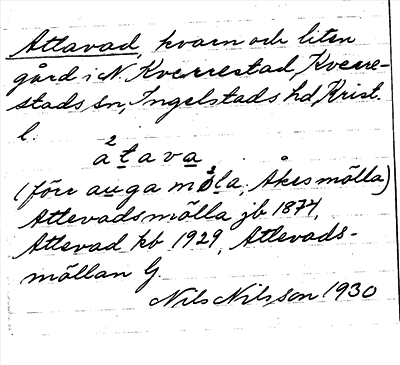 Attavad, kvarn och liten
gård i N. Kverrestad, Kverre-
stads sn, Ingelstads hd, Krist.
l.
a²tava
(förr auga mö²la, Åkes mölla)
Attevadsmölla jb 1874,
Attevad kb 1929, Attevads-
möllan G
Nils Nilsson 1930